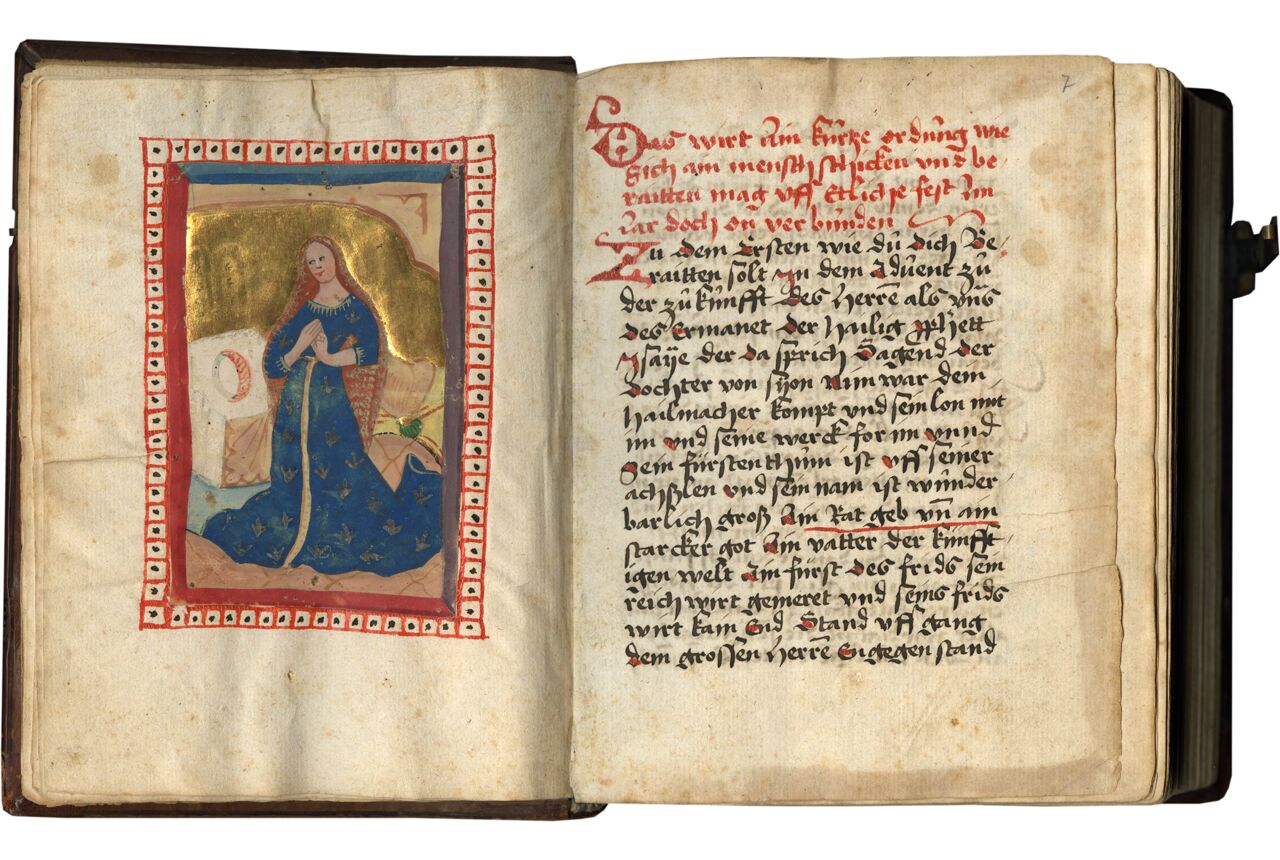 7
Das wirt ain kurtze ordnung wie
sich ain mensch schicken vnd be
raitten mag vff Etliche fest Im
iar doch on verbunden
Zu dem Ersten wie du dich Be
raitten solt In dem Aduent zu
der zukunfft des Herrē als vns
des Ermanet der Hailig pphett
ysaÿe der da sprich Sagend der
dochter von sÿon Nim war dein
Hailmacher kompt vnd sein lon mit
im vnd seine werck for im vnnd
Sein fürstenthum ist vff seiner
achßlen vnd sein nam ist wunder
barlich groß Ain Rat geb vn̄ ain
starcker got Ain vatter der kunfft
igen welt Ain fürst des frids sein
reich wirt gemeret vnd seins frids
wirt kain End Stand vff gang
dem grossen Herrē Engegen stand